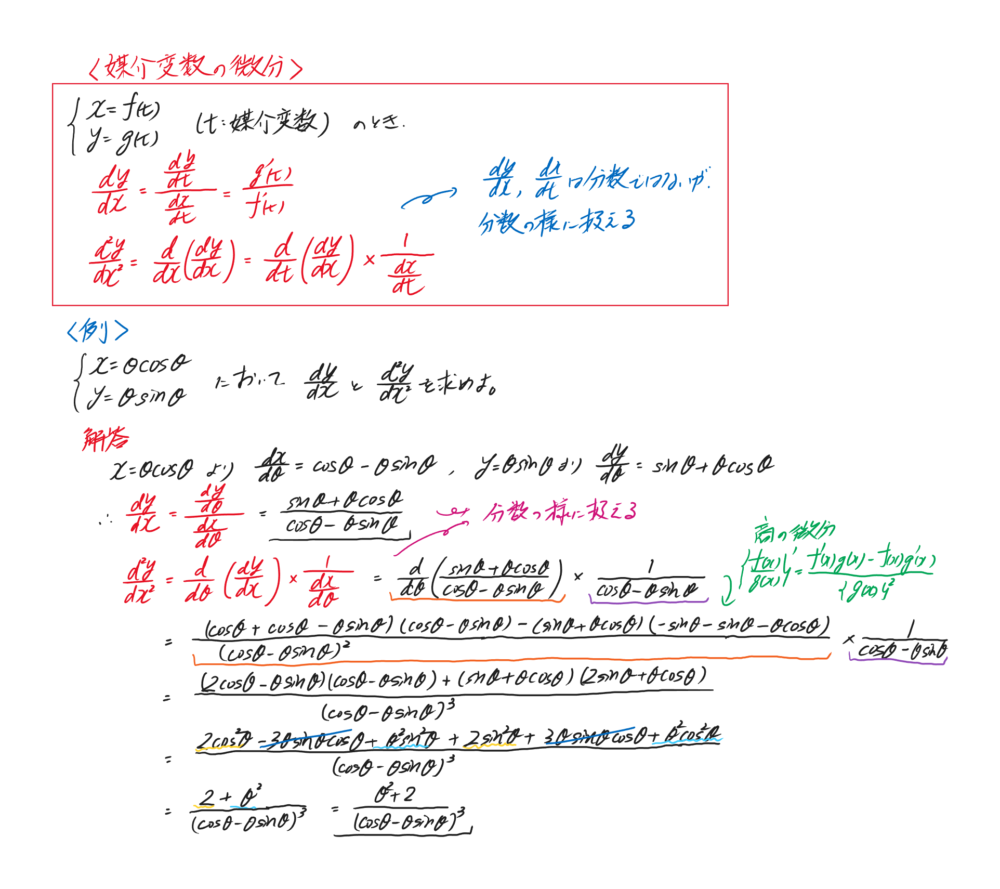 〈媒介変数の微分〉
{ x=f(t)
{ y=g(t) (t:媒介変数) のとき.
dy/dx = (dy/dt)/(dx/dt) = g'(t)/f'(t)
dy/dx, dx/dt は分数ではないが.
分数の様に扱える
d²y/dx² = d/dx(dy/dx) = d/dt(dy/dx) × 1/(dx/dt)
〈例〉
{ x=θcosθ
{ y=θsinθ において dy/dx と d²y/dx² を求めよ。
解答
x=θcosθ より dx/dθ = cosθ-θsinθ , y=θsinθより dy/dθ = sinθ+θcosθ
∴ dy/dx = (dy/dθ)/(dx/dθ) = (sinθ+θcosθ)/(cosθ-θsinθ)
分数の様に扱える
d²y/dx² = d/dθ (dy/dx) × 1/(dx/dθ) = d/dθ((sinθ+θcosθ)/(cosθ-θsinθ)) × 1/(cosθ-θsinθ)
商の微分
{f(x)/g(x)}' = (f'(x)g(x)-f(x)g'(x))/{g(x)}²
= ((cosθ+cosθ-θsinθ)(cosθ-θsinθ)-(sinθ+θcosθ)(-sinθ-sinθ-θcosθ))/(cosθ-θsinθ)² × 1/(cosθ-θsinθ)
= ((2cosθ-θsinθ)(cosθ-θsinθ)+(sinθ+θcosθ)(2sinθ+θcosθ))/(cosθ-θsinθ)³
= (2cos²θ-3θsinθcosθ+θ²sin²θ+2sin²θ+3θsinθcosθ+θ²cos²θ)/(cosθ-θsinθ)³
= (2+θ²)/(cosθ-θsinθ)³ = (θ²+2)/(cosθ-θsinθ)³